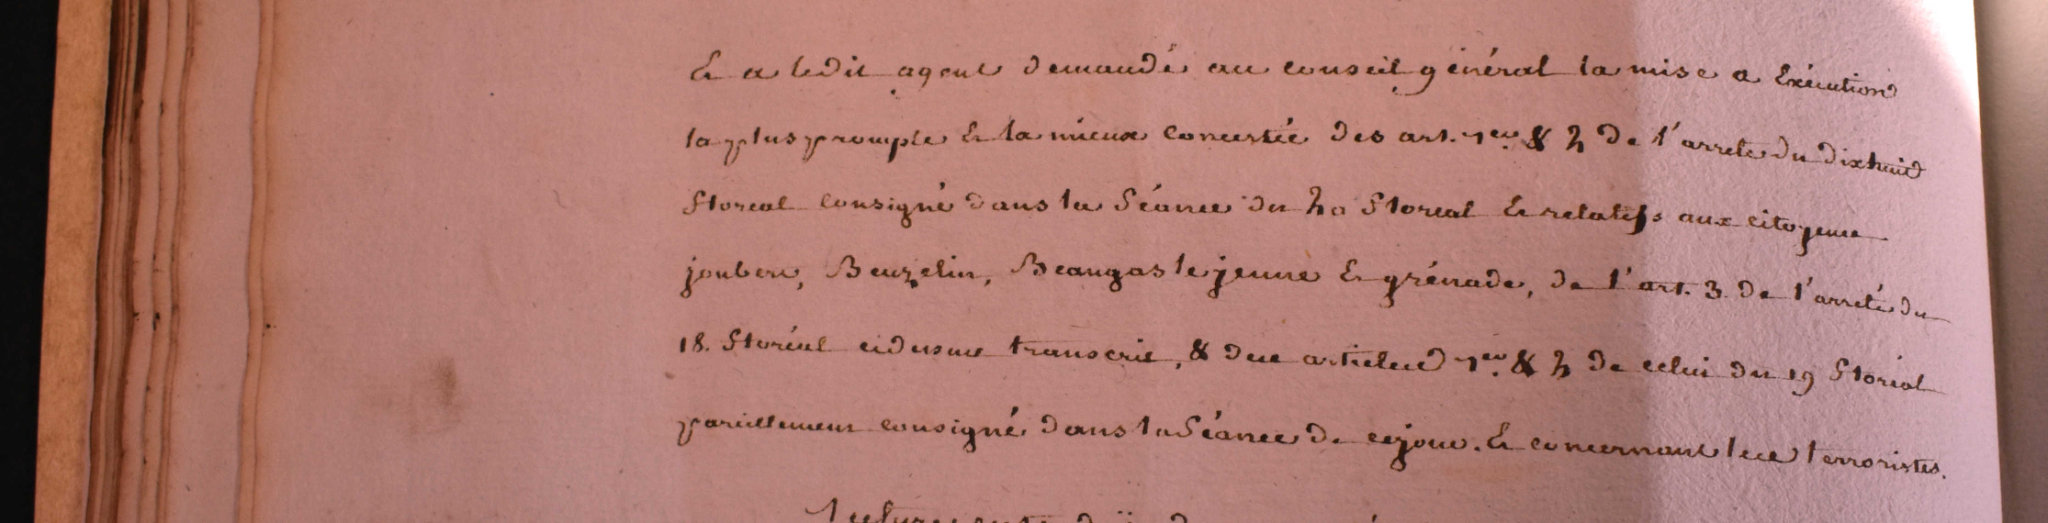 Et a ledit agent demandé au conseil général la mise a Exécution
la plus prompte Et la mieux concertée des art. 1er. & 2 de l'arrete du dixhuit
floreal consigné dans la séance du 20 floreal Et relatifs aux citoyens
joubert, Beuzelin, Beaugas le jeune Et grénade, de l'art. 3 de l'arreté du
18. floréal cidessus transcrit, & des articles 1er. & 2 de celui du 19 floréal
pareillement consigné dans la séance de ce jour. Et concernant les terroristes.